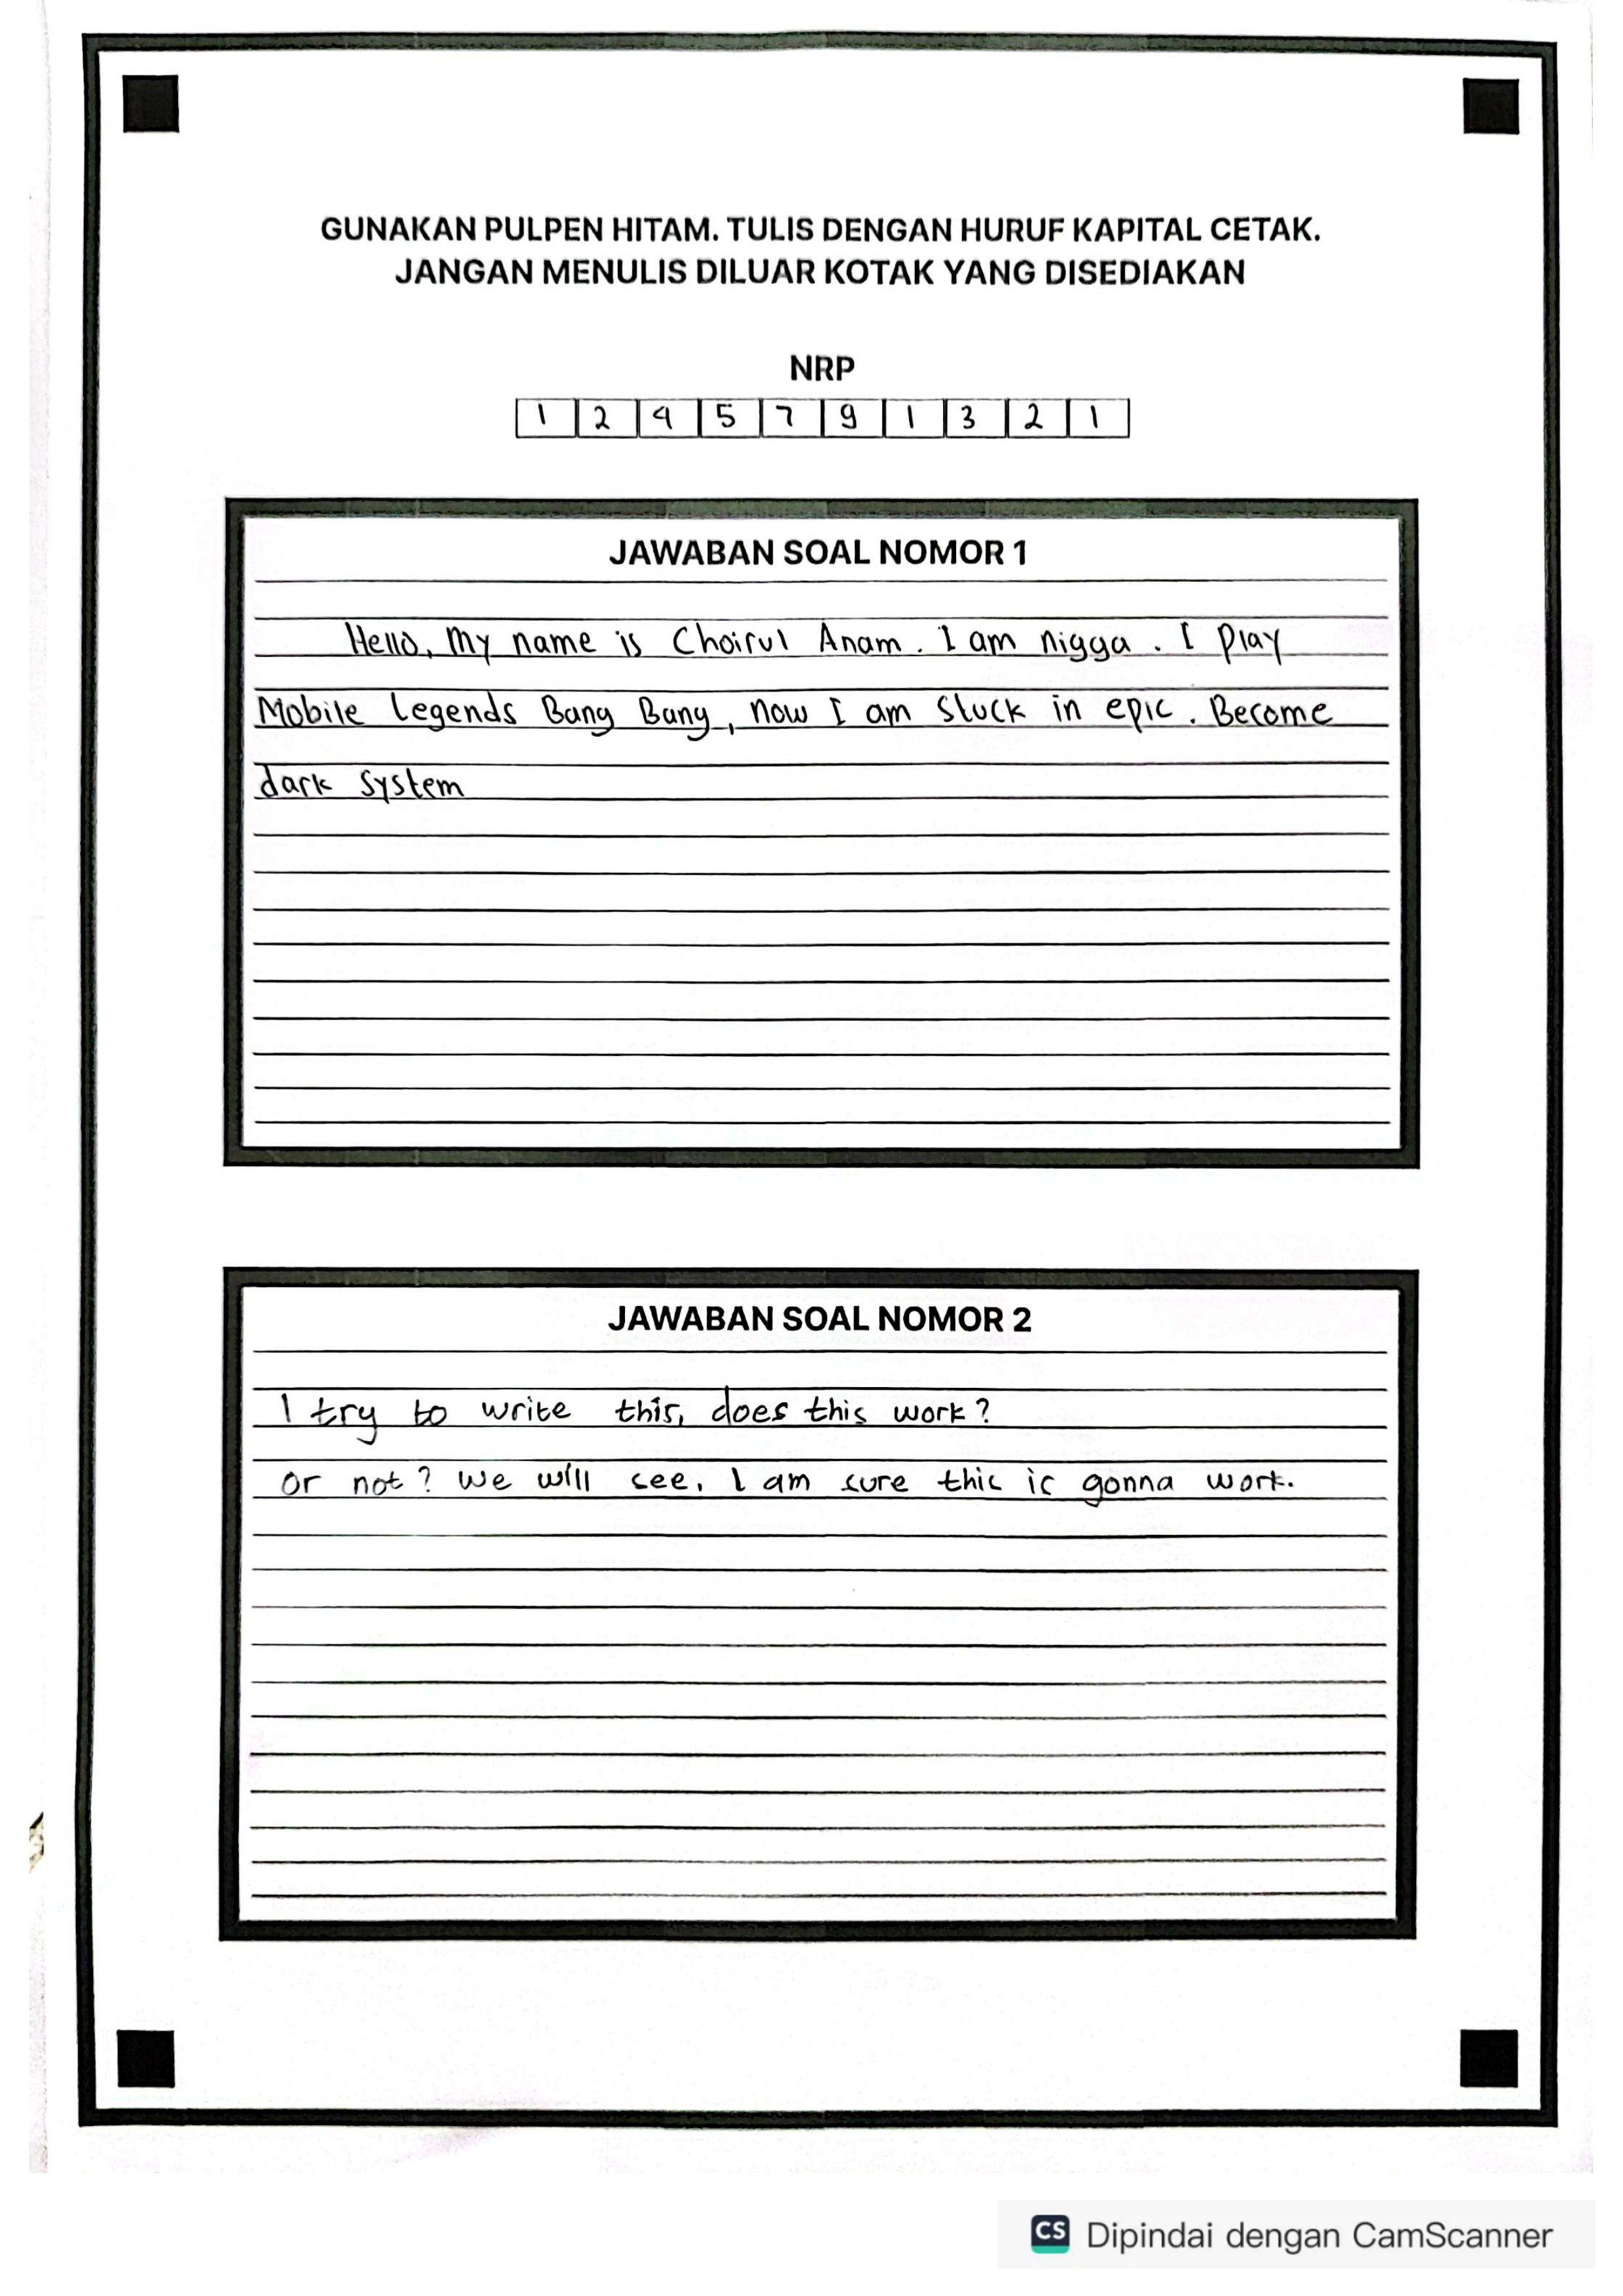 GUNAKAN PULPEN HITAM. TULIS DENGAN HURUF KAPITAL CETAK.
JANGAN MENULIS DILUAR KOTAK YANG DISEDIAKAN
NRP
1 2 4 5 7 9 1 3 2 1
JAWABAN SOAL NOMOR 1
Hello, My name is Choirul Anam. I am nigga. I Play
Mobile Legends Bang Bang, now I am stuck in epic. Become
dark system
JAWABAN SOAL NOMOR 2
I try to write this, does this work?
or not? We will see. I am sure this is gonna work.
CS Dipindai dengan CamScanner